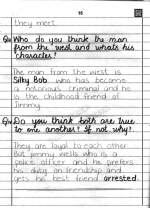 16
they meet.
Q. Who do you think the man
from the west and whats his
character?
The man from the west is
Silky Bob who has become
a notorious criminal and he
is the childhood friend of
Jimmy.
Q. Do you think both are true
to one another? If not why?
They are loyal to each other
But jimmy wells who is a
police officer and he prefers
his duty on friendship and
gets his best friend arrested.